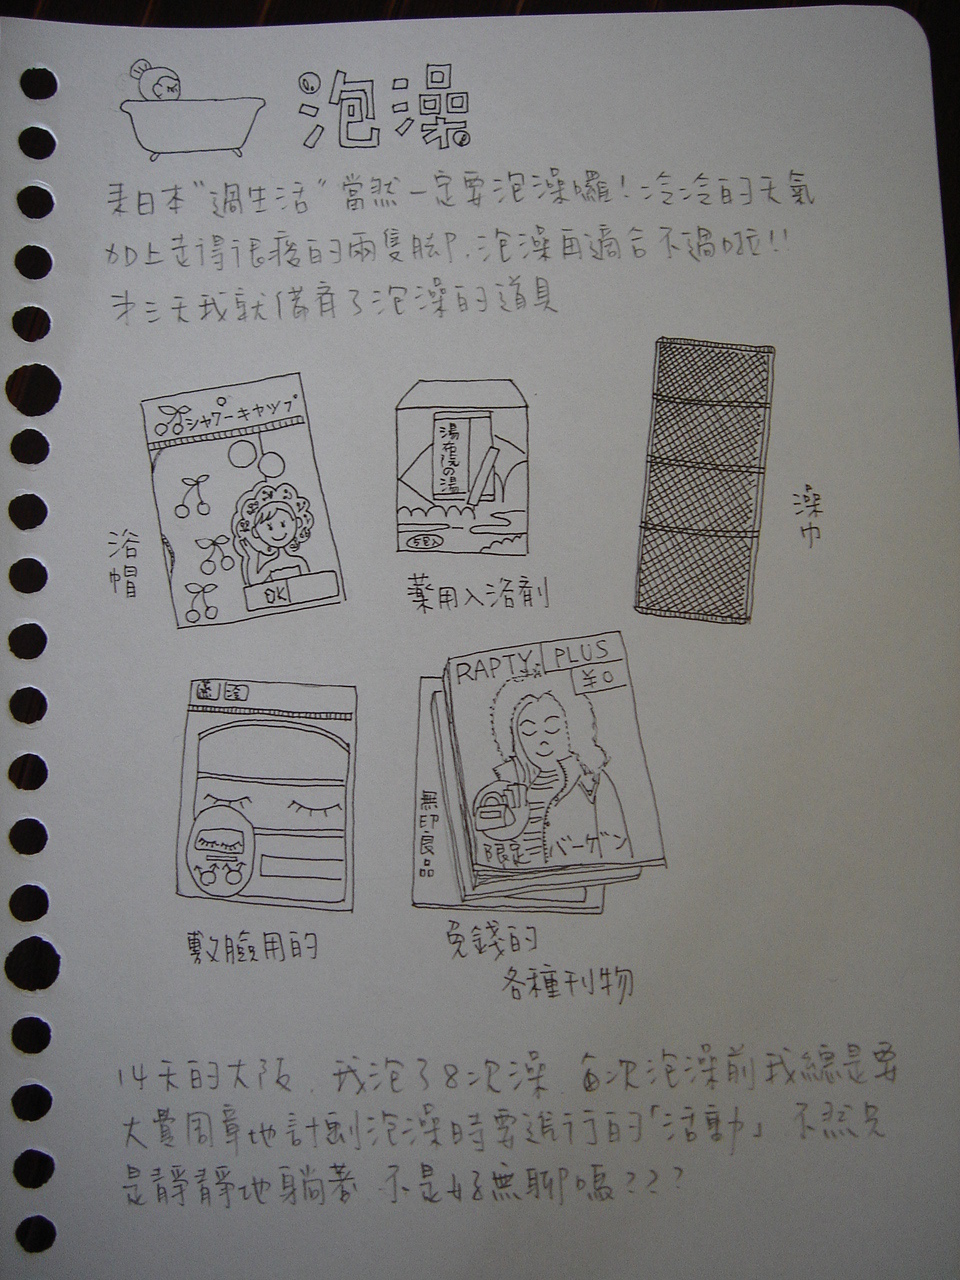 泡澡
來日本"過生活"當然一定要泡澡囉!冷冷的天氣
加上走得很痠的兩隻腳,泡澡再適合不過啦!!
才三天我就備齊了泡澡的道具
シャワーキャップ
OK
浴帽
湯布院の湯
5包入
薬用入浴剤
澡巾
敷臉用的
RAPTY PLUS
¥0
限定バーゲン
無印良品
免錢的
各種刊物
14天的大阪,我泡了8次澡,每次泡澡前我總是要
大費周章地計劃泡澡時要進行的「活動」不然只
是靜靜地躺著 不是好無聊嗎???